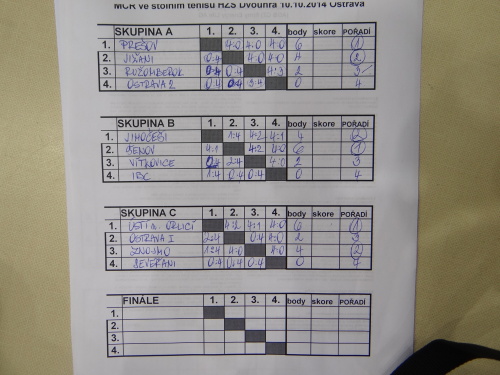 MČR ve stolním tenisu HZS Dvouhra 10.10.2014 Ostrava
SKUPINA A 1. 2. 3. 4. body skore POŘADÍ
1. PREŠOV 4:0 4:0 4:0 6 1
2. 0:4 4:0 4:0 4 2
3. RUŽOMBEROK 0:4 0:4 4:3 2 3
4. OSTRAVA 2 0:4 0:4 3:4 0 4
SKUPINA B 1. 2. 3. 4. body skore POŘADÍ
1. JIHOČEŠI 1:4 4:2 4:1 4 2
2. ŠENOV 4:1 4:2 4:0 6 1
3. VÍTKOVICE 2:4 4:0 2 3
4. 1:4 0:4 0:4 0 4
SKUPINA C 1. 2. 3. 4. body skore POŘADÍ
1. ÚSTÍ N. ORLICÍ 4:2 4:1 4:0 6 1
2. OSTRAVA I 2:4 0:4 4:0 2 3
3. ZNOJMO 1:4 4:0 4:0 4 2
4. SEVERANI 0:4 0:4 0:4 0 4
FINÁLE 1. 2. 3. 4. body skore POŘADÍ
1.
2.
3.
4.